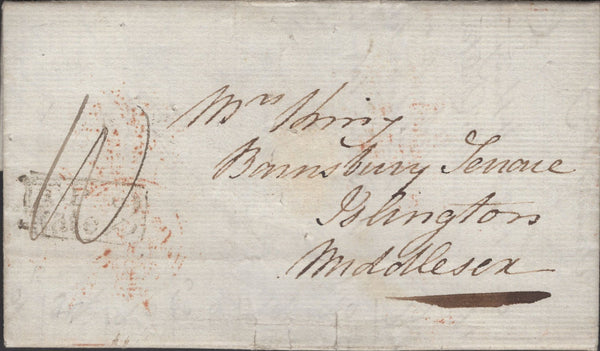 10
Mrs King
Barnsbury Terrace
Islington
Middlesex